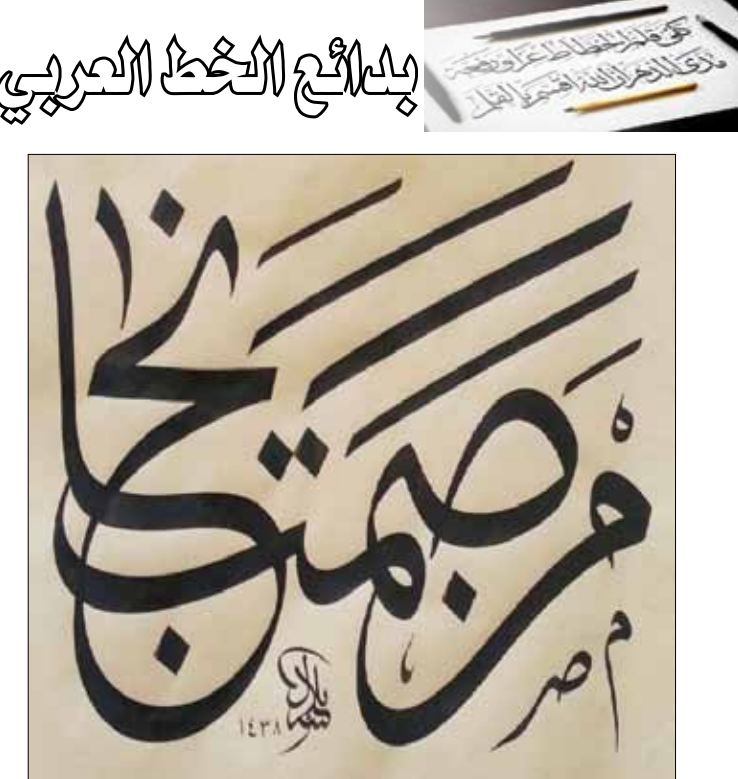 بدائع الخط العربي
كفى قلم الخطاط عزا ورفعة
مدى الدهر أن الله أقسم بالقلم
من صمت نجا
١٤٣٨